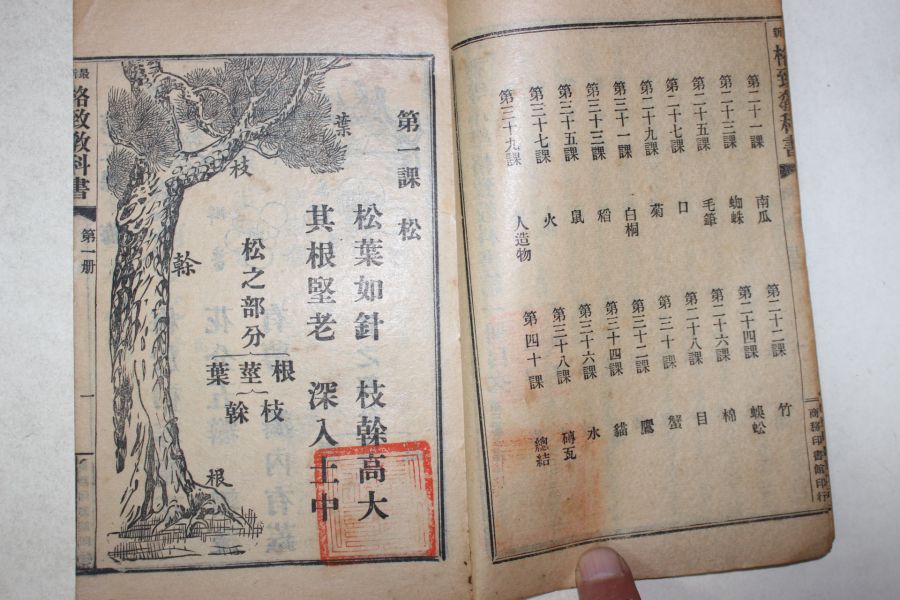 新 格致教科書
商務印書館印行
第二十一課 南瓜 第二十二課 竹
第二十三課 蜘蛛 第二十四課 蜈蚣
第二十五課 毛筆 第二十六課 棉
第二十七課 口 第二十八課 目
第二十九課 菊 第三十課 蟹
第三十一課 白桐 第三十二課 鷹
第三十三課 稻 第三十四課 貓
第三十五課 鼠 第三十六課 水
第三十七課 火 第三十八課 磚瓦
第三十九課 人造物 第四十課 總結
第一課 松
松葉如針 枝榦高大
其根堅老 深入土中
松之部分
根
莖
葉
枝
榦
葉
枝
榦
根
最新格致教科書 第一册 一